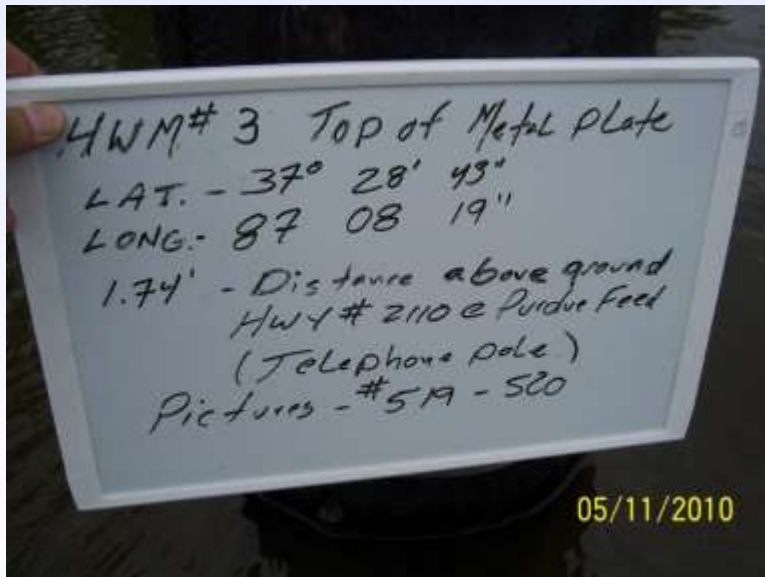 HWM# 3 Top of Metal Plate
LAT. - 37° 28' 43"
LONG.- 87 08 19"
1.74' - Distance above ground
HWY # 2110 @ Purdue Feed
(Telephone pole)
Pictures - #519 - 520
05/11/2010